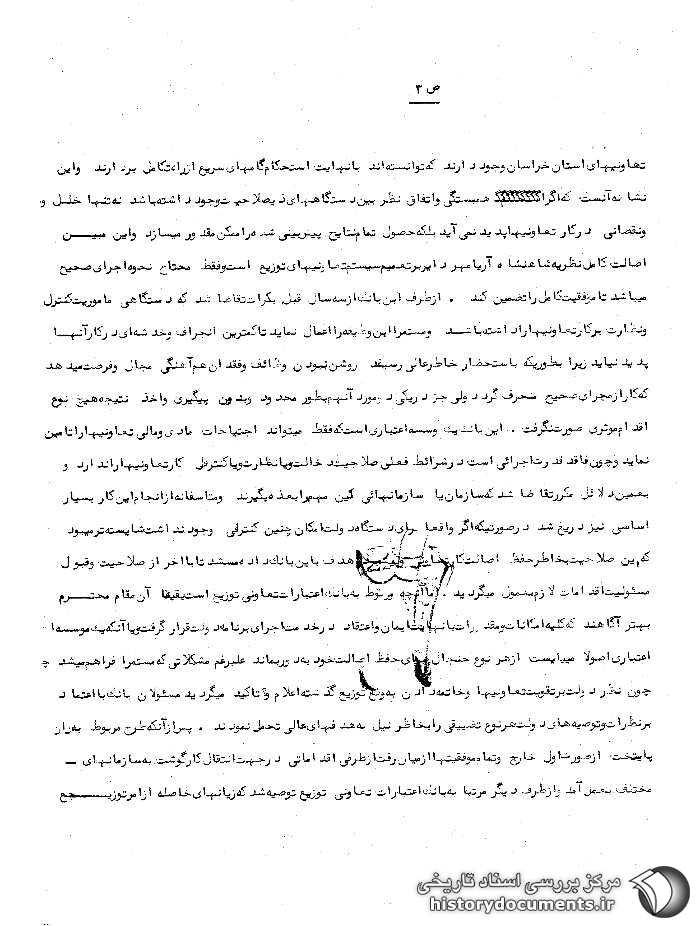 ص ۳
تعاونیهای استان خراسان وجود دارند که توانسته‌اند با نهایت استحکام گامهای سریع از راه تکامل بردارند واین
نشانه آنست که اگر همبستگی واتفاق نظر بین دستگاههای ذیصلاحیت وجود داشته باشد نه تنها خلل و
ونقصانی درکار تعاونیها پدید نمی آید بلکه حصول تمام نتایج پیش‌بینی شده را ممکن مقدور میسازد واین مبیـــن
اصالت کامل نظریه شاهنشاه آریامهر دایر بر تعمیم سیستم تعاونیهای توزیع است وفقط محتاج نحوه اجرای صحیح
میباشد تا موفقیت کامل را تضمین کند . ازطرف این بانک از سه سال قبل بکرات تقاضا شد که دستگاهی ماموریت کنترل
ونظارت برکار تعاونیها را داشته باشـــد ومستمرا این وظیفه را اعمال نماید تا کمترین انحراف وخدشه‌ای درکار آنهـــا
پدید نیاید زیرا بطوریکه باستحضار خاطرعالی رسیده روشن نبودن وظائف وفقدان هم‌آهنگی مجال وفرصت میدهد
که کار از مجرای صحیح منحرف گردد ولی جز دریکی دومورد آنهم بطور محدود وبدون پیگیری واخذ نتیجه هیچ نوع
اقدام موثری صورت نگرفت . این بانک یک موسسه اعتباری است که فقط میتواند احتیاجات مادی ومالی تعاونیها را تامین
نماید وچون فاقد قدرت اجرائی است در شرائط فعلی صلاحیت دخالت ویا نظارت ویا کنترل کار تعاونیها را ندارد و
بهمین دلائل مکرر تقاضا شد که سازمان یا سازمانهائی این مهم را بعهده بگیرند ومتاسفانه از انجام این کار بسیار
اساسی نیز دریغ شد درصورتیکه اگر واقعا برای دستگاه دولت امکان چنین کنترلی وجود نداشت شایسته‌تر میبود
که این صلاحیت بخاطر حفظ اصالت کار هدف باین بانک داده میشد تا با احراز صلاحیت وقبول
مسئولیت اقدامات لازم معمول میگردید . اما آنچه مربوط به بانک اعتبارات تعاونی توزیع است یقیقا آن مقام محتـــرم
بهتر آگاهند که کلیه امکانات ومقدورات با نهایت ایمان واعتقاد در خدمت اجرای برنامه دولت قرار گرفت وبا آنکه یک موسسه
اعتباری اصولا میبایست از هر نوع جنجال برای حفظ اصالت خود بدور بماند علیرغم مشکلاتی که مستمرا فراهم میشد چ
چون نظر دولت بر تقویت تعاونیها وخاتمه دادن به وضع توزیع گذشته اعلام وتاکید میگردید مسئولان بانک با اعتماد
بر نظرات وتوصیه‌های دولت هر نوع تضییقی را بخاطر نیل به هدفهای عالی تحمل نمودند . پس از آنکه طرح مربوط به نان
پایتخت از صورت اول خارج وتمام موفقیتها از میان رفت از طرفی اقداماتی در جهت انتقال کار گوشت به سازمانهای –
مختلف بعمل آمد واز طرف دیگر مرتبا به بانک اعتبارات تعاونی توزیع توصیه شد که زیانهای حاصله از امر توزیـــــع
مرکز بررسی اسناد تاریخی
historydocuments.ir